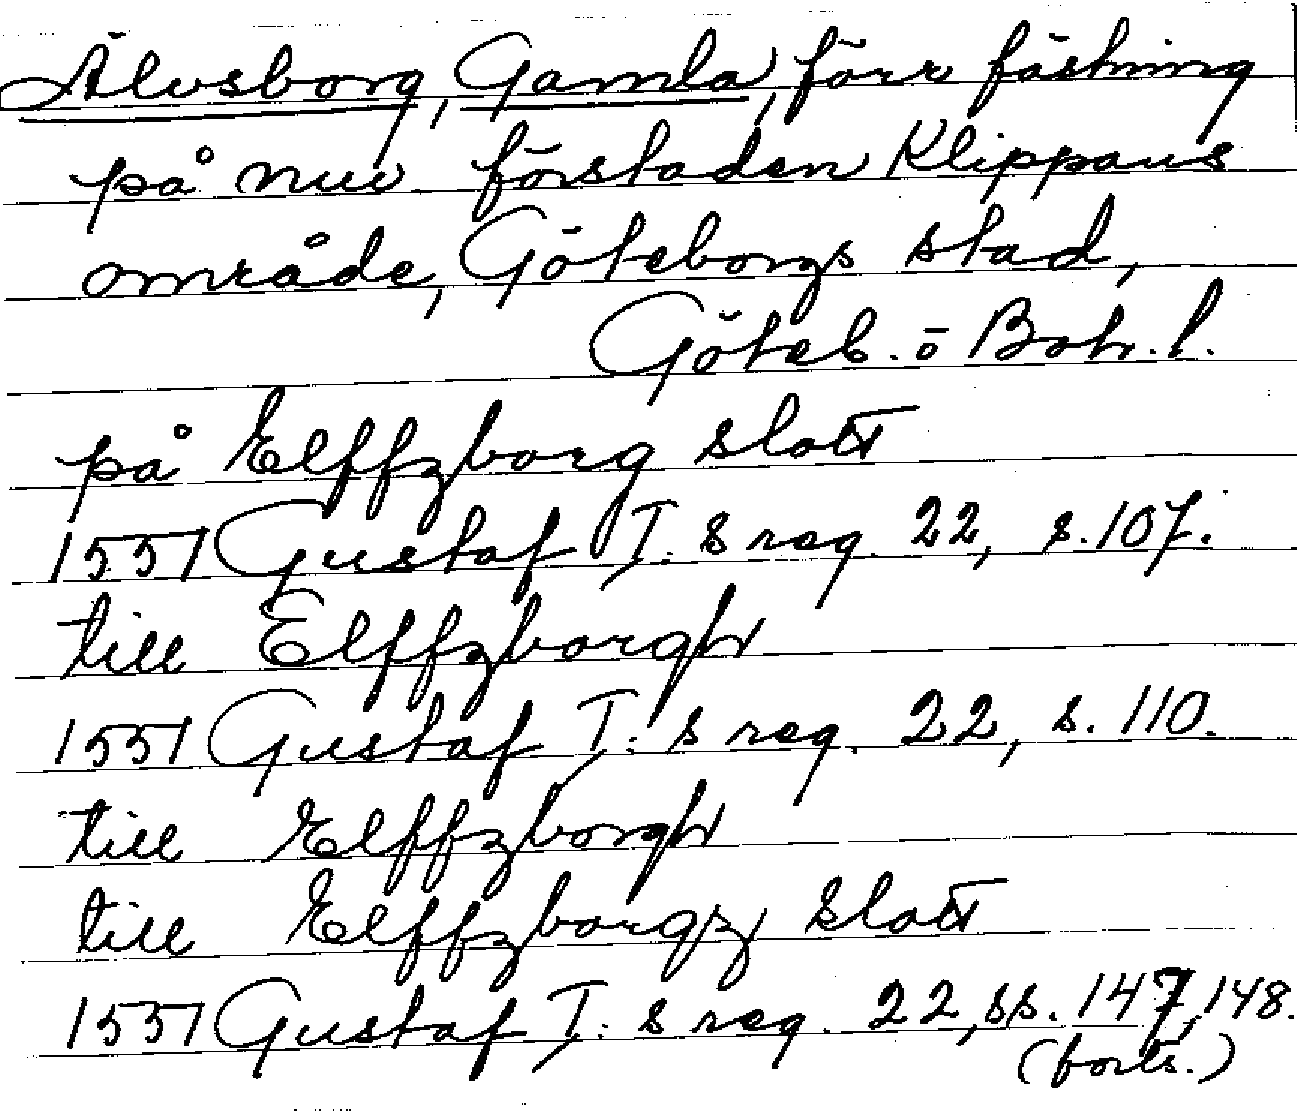 Älvsborg, Gamla, förr fästning
på nuv förstaden Klippans
område, Göteborgs stad,
Göteb. o Boh. l.
på Elffzborg slott
1551 Gustaf I:s reg. 22, s. 107.
till Elffzborgh
1551 Gustaf I:s reg. 22, s. 110.
till Elffzborgh
till Elffzborgz slott
1551 Gustaf I:s reg. 22, ss. 147, 148.
(forts.)